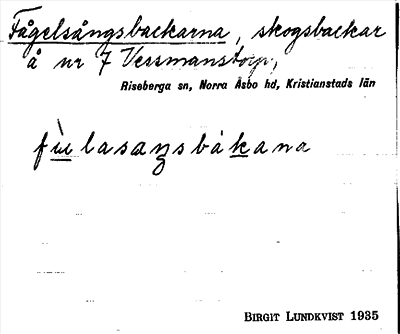 Fågelsångsbackarna, skogsbackar
å nr 7 Vessmanstorp,
Riseberga sn, Norra Åsbo hd, Kristianstads län
BIRGIT LUNDKVIST 1935